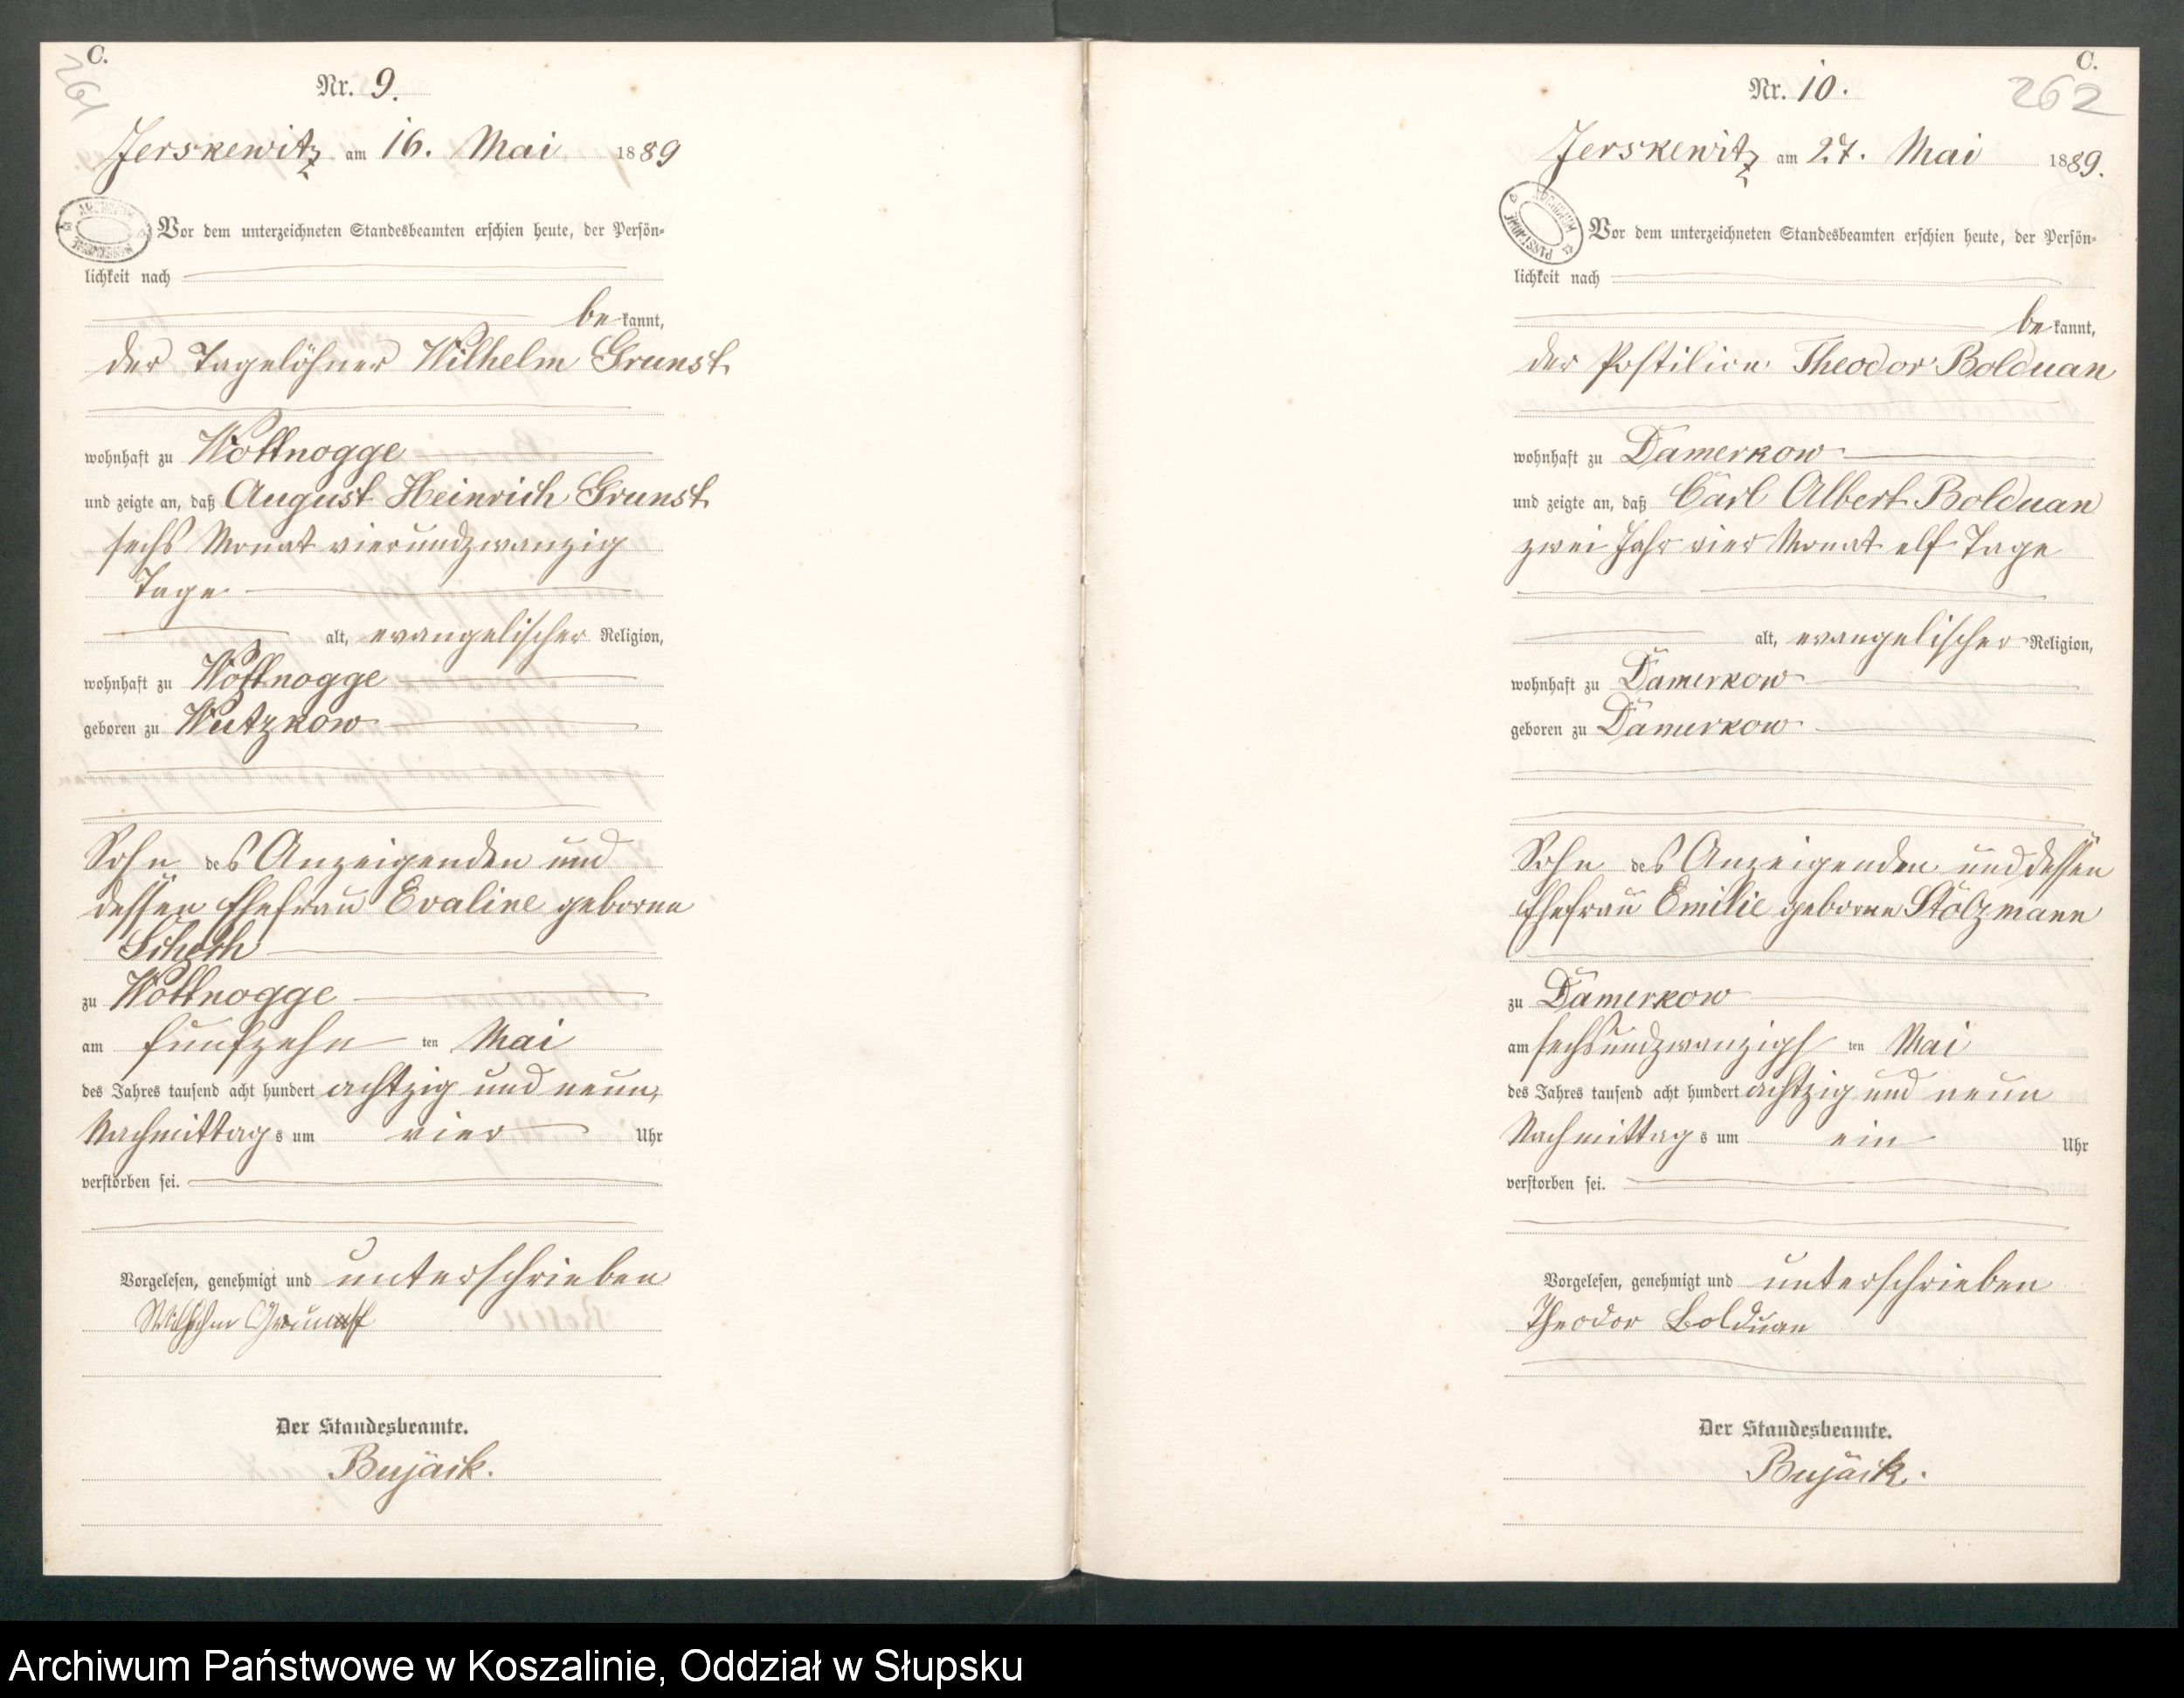 C.
261
Nr. 9.
Jerskewitz am 16. Mai 1889
Vor dem unterzeichneten Standesbeamten erschien heute, der Persön-
lichkeit nach
bekannt,
der Tagelöhner Wilhelm Grunst
wohnhaft zu Wottnogge
und zeigte an, daß August Heinrich Grunst
sechs Monat vierundzwanzig
Tage
alt, evangelischer Religion,
wohnhaft zu Wottnogge
geboren zu Wutzkow
Sohn des Anzeigenden und
dessen Ehefrau Evaline geborne
zu Wottnogge
am fünfzehnten Mai
des Jahres tausend acht hundert achtzig und neun,
Nachmittags um vier Uhr
verstorben sei.
Vorgelesen, genehmigt und unterschrieben
Wilhelm Grunst
Der Standesbeamte.
Bujack.
C.
262
Nr. 10.
Jerskewitz am 27. Mai 1889.
Vor dem unterzeichneten Standesbeamten erschien heute, der Persön-
lichkeit nach
bekannt,
der Postilion Theodor Bolduan
wohnhaft zu Damerkow
und zeigte an, daß Carl Albert Bolduan
zwei Jahr vier Monat elf Tage
alt, evangelischer Religion,
wohnhaft zu Damerkow
geboren zu Damerkow
Sohn des Anzeigenden und dessen
Ehefrau Emilie geborne Stolzmann
zu Damerkow
am sechsundzwanzigsten Mai
des Jahres tausend acht hundert achtzig und neun
Nachmittags um ein Uhr
verstorben sei.
Vorgelesen, genehmigt und unterschrieben
Theodor Bolduan
Der Standesbeamte.
Bujack.
Archiwum Państwowe w Koszalinie, Oddział w Słupsku